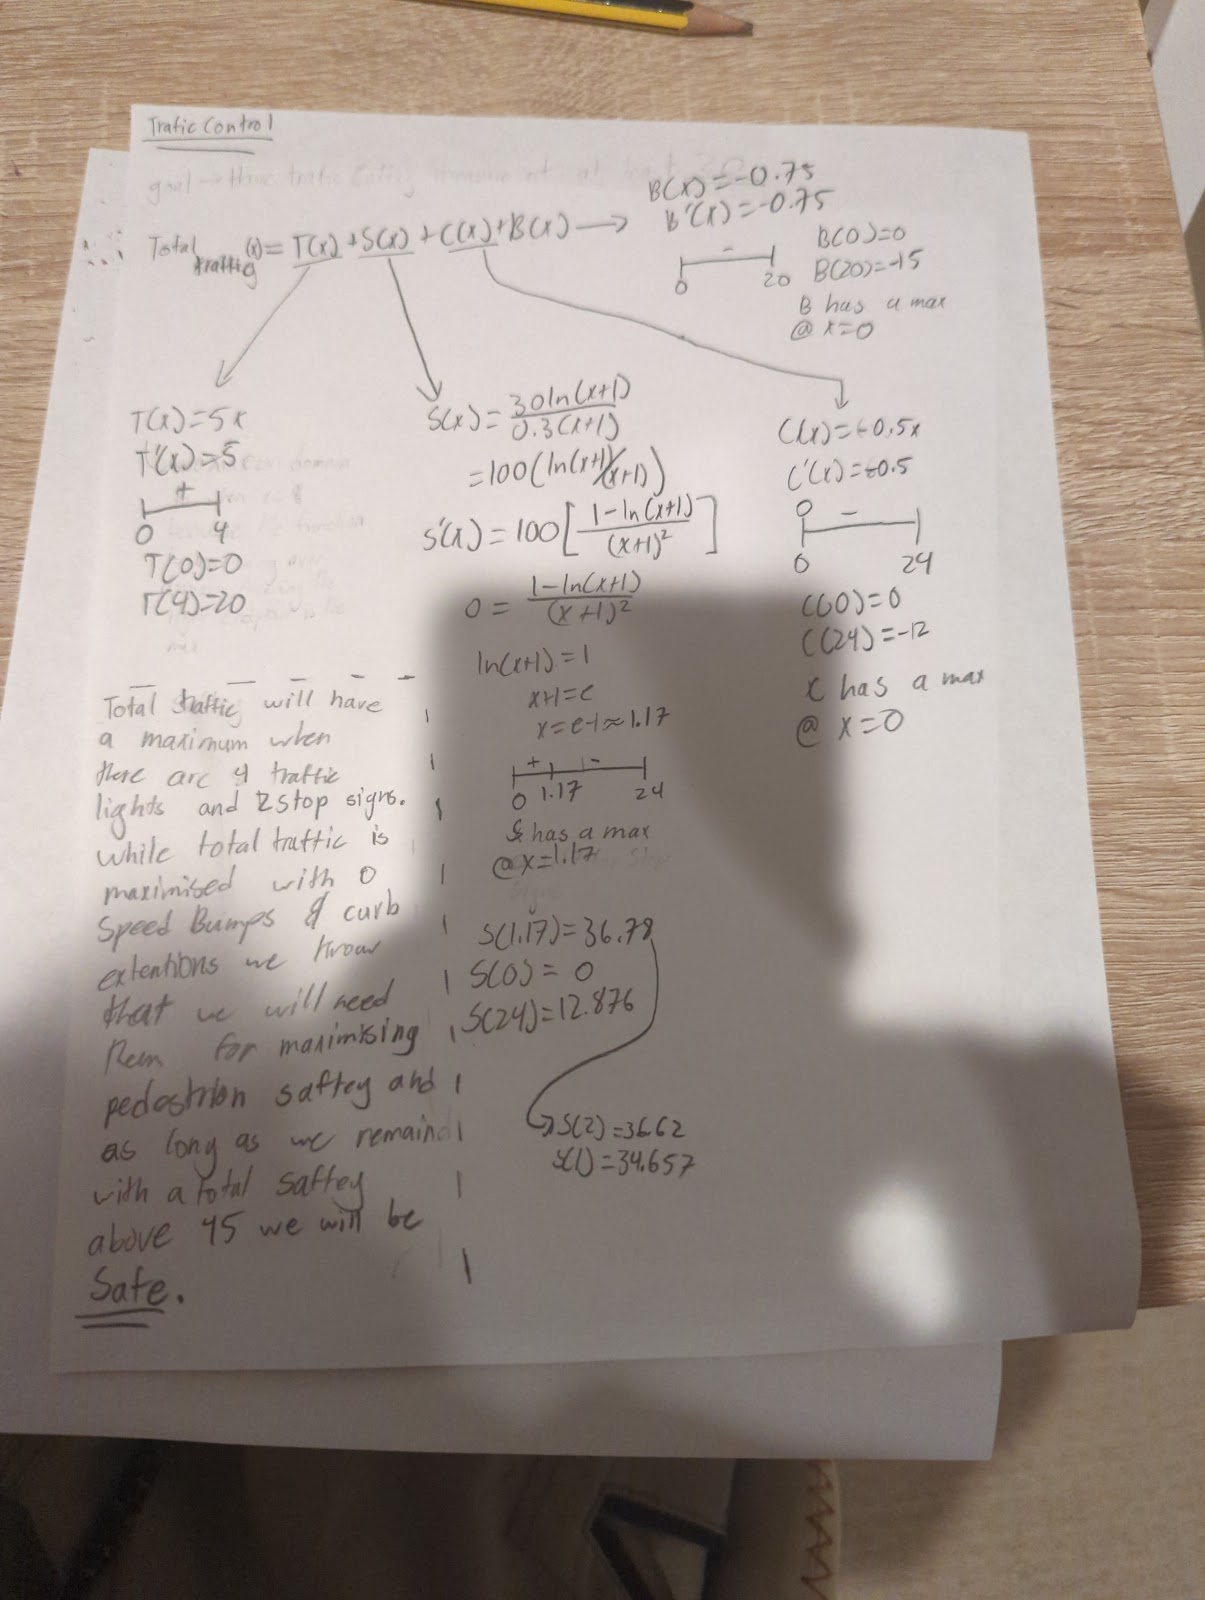 Trafic Control
Total traffic (x) = T(x) + S(x) + C(x) + B(x) →
B(x) = -0.75
B'(x) = -0.75
-
0 20
B(0)=0
B(20)=-15
B has a max
@ x=0
T(x) = 5x
T'(x) = 5
+
0 4
T(0)=0
T(4)=20
S(x) = 30ln(x+1)/0.3(x+1)
=100(ln(x+1)/(x+1))
S'(x) = 100[1-ln(x+1)/(x+1)²]
0 = 1-ln(x+1)/(x+1)²
ln(x+1) = 1
x+1=e
x=e-1≈1.17
+ -
0 1.17 24
S has a max
@ x=1.17
S(1.17)=36.78
S(0) = 0
S(24)=12.876
S(2)=36.62
S(1)=34.657
C(x)=-0.5x
C'(x)=-0.5
0 -
0 24
C(0)=0
C(24)=-12
C has a max
@ x=0
Total traffic will have
a maximum when
there are 4 traffic
lights and 2 stop signs.
while total traffic is
maximised with 0
Speed Bumps & curb
extentions we know
that we will need
them for maximising
pedestrion saftey and
as long as we remain
with a total saftey
above 45 we will be
Safe.